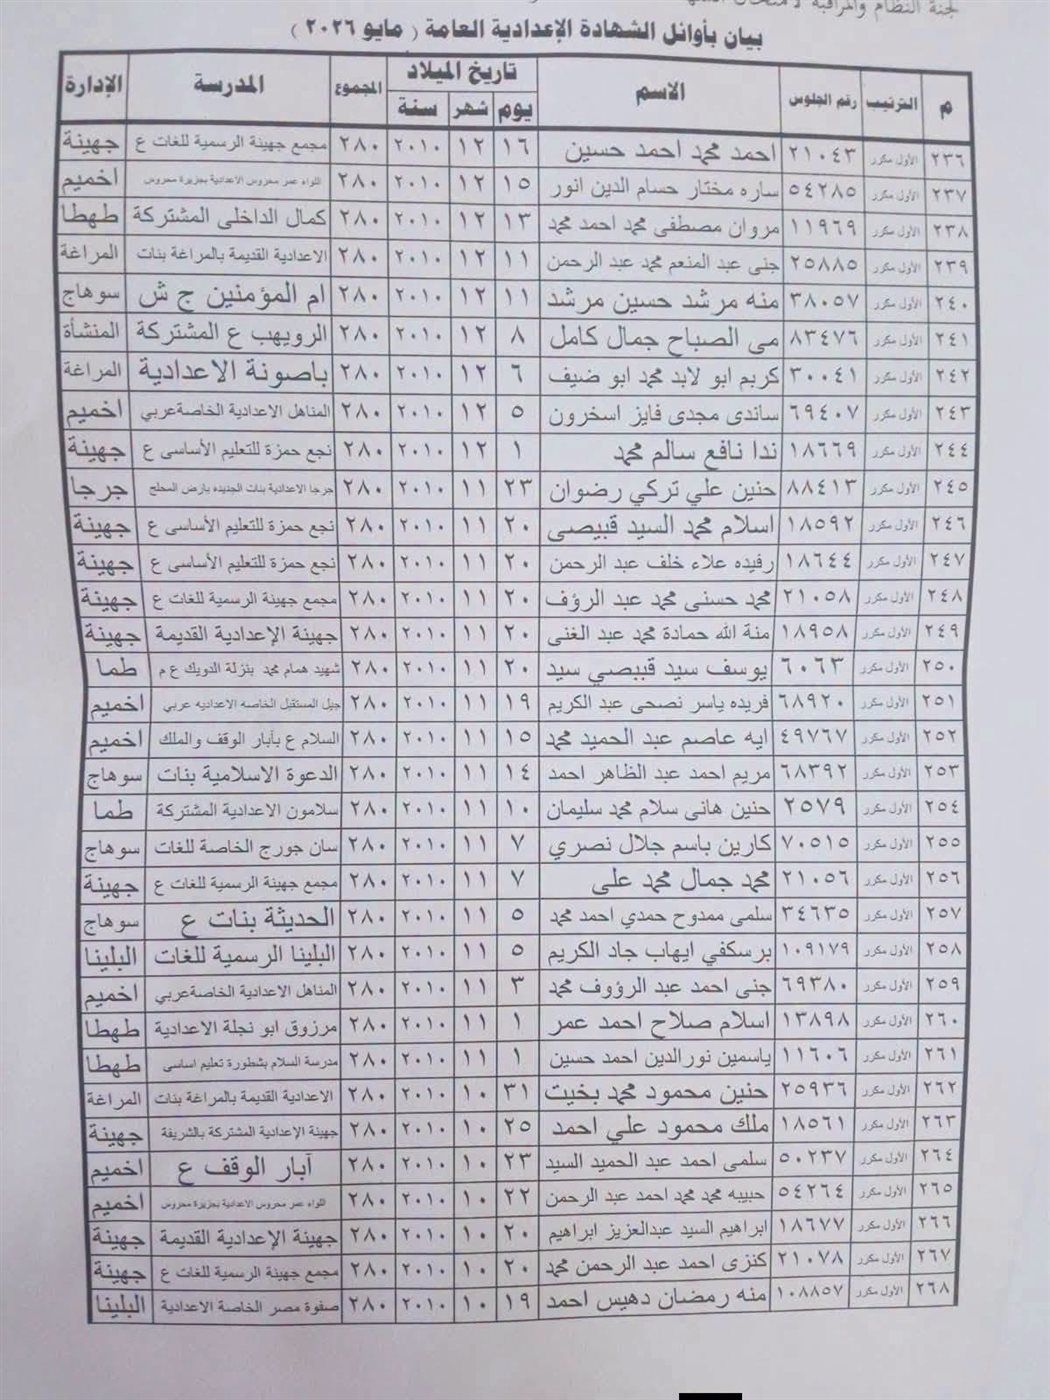 لجنة النظام والمراقبة لامتحان
بيان بأوائل الشهادة الإعدادية العامة ( مايو ٢٠٢٦ )
م الترتيب رقم الجلوس الاسم تاريخ الميلاد المجموع المدرسة الإدارة
يوم شهر سنة
٢٣٦ الأول مكرر ٢١٠٤٣ احمد محمد احمد حسين ١٦ ١٢ ٢٠١٠ ٢٨٠ مجمع جهينة الرسمية للغات ع جهينة
٢٣٧ الأول مكرر ٥٤٢٨٥ ساره مختار حسام الدين انور ١٥ ١٢ ٢٠١٠ ٢٨٠ اللواء عمر محروس الاعدادية بجزيرة محروس اخميم
٢٣٨ الأول مكرر ١١٩٦٩ مروان مصطفى محمد احمد محمد ١٣ ١٢ ٢٠١٠ ٢٨٠ كمال الداخلى المشتركة طهطا
٢٣٩ الأول مكرر ٢٥٨٨٥ جنى عبد المنعم محمد عبد الرحمن ١١ ١٢ ٢٠١٠ ٢٨٠ الاعدادية القديمة بالمراغة بنات المراغة
٢٤٠ الأول مكرر ٣٨٠٥٧ منه مرشد حسين مرشد ١١ ١٢ ٢٠١٠ ٢٨٠ ام المؤمنين ج ش سوهاج
٢٤١ الأول مكرر ٨٣٤٧٦ مى الصباح جمال كامل ٨ ١٢ ٢٠١٠ ٢٨٠ الرويهب ع المشتركة المنشأة
٢٤٢ الأول مكرر ٣٠٠٤١ كريم ابو لابد محمد ابو ضيف ٦ ١٢ ٢٠١٠ ٢٨٠ باصونة الاعدادية المراغة
٢٤٣ الأول مكرر ٦٩٤٠٧ ساندى مجدى فايز اسخرون ٥ ١٢ ٢٠١٠ ٢٨٠ المناهل الاعدادية الخاصةعربي اخميم
٢٤٤ الأول مكرر ١٨٦٦٩ ندا نافع سالم محمد ١ ١٢ ٢٠١٠ ٢٨٠ نجع حمزة للتعليم الأساسى ع جهينة
٢٤٥ الأول مكرر ٨٨٤١٣ حنين علي تركي رضوان ٢٣ ١١ ٢٠١٠ ٢٨٠ جرجا الاعدادية بنات الجديده بارض المحلج جرجا
٢٤٦ الأول مكرر ١٨٥٩٢ اسلام محمد السيد قبيصى ٢٠ ١١ ٢٠١٠ ٢٨٠ نجع حمزة للتعليم الأساسى ع جهينة
٢٤٧ الأول مكرر ١٨٦٤٤ رفيده علاء خلف عبد الرحمن ٢٠ ١١ ٢٠١٠ ٢٨٠ نجع حمزة للتعليم الأساسى ع جهينة
٢٤٨ الأول مكرر ٢١٠٥٨ محمد حسنى محمد عبد الرؤف ٢٠ ١١ ٢٠١٠ ٢٨٠ مجمع جهينة الرسمية للغات ع جهينة
٢٤٩ الأول مكرر ١٨٩٥٨ منة الله حمادة محمد عبد الغنى ٢٠ ١١ ٢٠١٠ ٢٨٠ جهينة الإعدادية القديمة جهينة
٢٥٠ الأول مكرر ٦٠٦٣ يوسف سيد قبيصي سيد ٢٠ ١١ ٢٠١٠ ٢٨٠ شهيد همام محمد بنزلة الدويك ع م طما
٢٥١ الأول مكرر ٦٨٩٢٠ فريده ياسر نصحى عبد الكريم ١٩ ١١ ٢٠١٠ ٢٨٠ جيل المستقبل الخاصه الاعداديه عربي اخميم
٢٥٢ الأول مكرر ٤٩٧٦٧ ايه عاصم عبد الحميد محمد ١٥ ١١ ٢٠١٠ ٢٨٠ السلام ع بآبار الوقف والملك اخميم
٢٥٣ الأول مكرر ٦٨٣٩٢ مريم احمد عبد الظاهر احمد ١٤ ١١ ٢٠١٠ ٢٨٠ الدعوة الاسلامية بنات سوهاج
٢٥٤ الأول مكرر ٢٥٧٩ حنين هانى سلام محمد سليمان ١٠ ١١ ٢٠١٠ ٢٨٠ سلامون الإعدادية المشتركة طما
٢٥٥ الأول مكرر ٧٠٥١٥ كارين باسم جلال نصري ٧ ١١ ٢٠١٠ ٢٨٠ سان جورج الخاصة للغات سوهاج
٢٥٦ الأول مكرر ٢١٠٥٦ محمد جمال محمد على ٧ ١١ ٢٠١٠ ٢٨٠ مجمع جهينة الرسمية للغات ع جهينة
٢٥٧ الأول مكرر ٣٤٦٣٥ سلمى ممدوح حمدي احمد محمد ٥ ١١ ٢٠١٠ ٢٨٠ الحديثة بنات ع سوهاج
٢٥٨ الأول مكرر ١٠٩١٧٩ برسكفي ايهاب جاد الكريم ٥ ١١ ٢٠١٠ ٢٨٠ البلينا الرسمية للغات البلينا
٢٥٩ الأول مكرر ٦٩٣٨٠ جنى احمد عبد الرؤوف محمد ٣ ١١ ٢٠١٠ ٢٨٠ المناهل الاعدادية الخاصةعربي اخميم
٢٦٠ الأول مكرر ١٣٨٩٨ اسلام صلاح احمد عمر ١ ١١ ٢٠١٠ ٢٨٠ مرزوق ابو نجلة الاعدادية طهطا
٢٦١ الأول مكرر ١١٦٠٦ ياسمين نورالدين احمد حسين ١ ١١ ٢٠١٠ ٢٨٠ مدرسة السلام بشطورة تعليم اساسى طهطا
٢٦٢ الأول مكرر ٢٥٩٣٦ حنين محمود محمد بخيت ٣١ ١٠ ٢٠١٠ ٢٨٠ الاعدادية القديمة بالمراغة بنات المراغة
٢٦٣ الأول مكرر ١٨٥٦١ ملك محمود علي احمد ٢٥ ١٠ ٢٠١٠ ٢٨٠ جهينة الإعدادية المشتركة بالشريفة جهينة
٢٦٤ الأول مكرر ٥٠٢٣٧ سلمى احمد عبد الحميد السيد ٢٣ ١٠ ٢٠١٠ ٢٨٠ آبار الوقف ع اخميم
٢٦٥ الأول مكرر ٥٤٢٦٤ حبيبه محمد محمد احمد عبد الرحمن ٢٢ ١٠ ٢٠١٠ ٢٨٠ اللواء عمر محروس الاعدادية بجزيرة محروس اخميم
٢٦٦ الأول مكرر ١٨٦٧٧ ابراهيم السيد عبدالعزيز ابراهيم ٢٠ ١٠ ٢٠١٠ ٢٨٠ جهينة الإعدادية القديمة جهينة
٢٦٧ الأول مكرر ٢١٠٧٨ كنزى احمد عبد الرحمن محمد ٢٠ ١٠ ٢٠١٠ ٢٨٠ مجمع جهينة الرسمية للغات ع جهينة
٢٦٨ الأول مكرر ١٠٨٨٥٧ منه رمضان دهيس احمد ١٩ ١٠ ٢٠١٠ ٢٨٠ صفوة مصر الخاصة الاعدادية البلينا